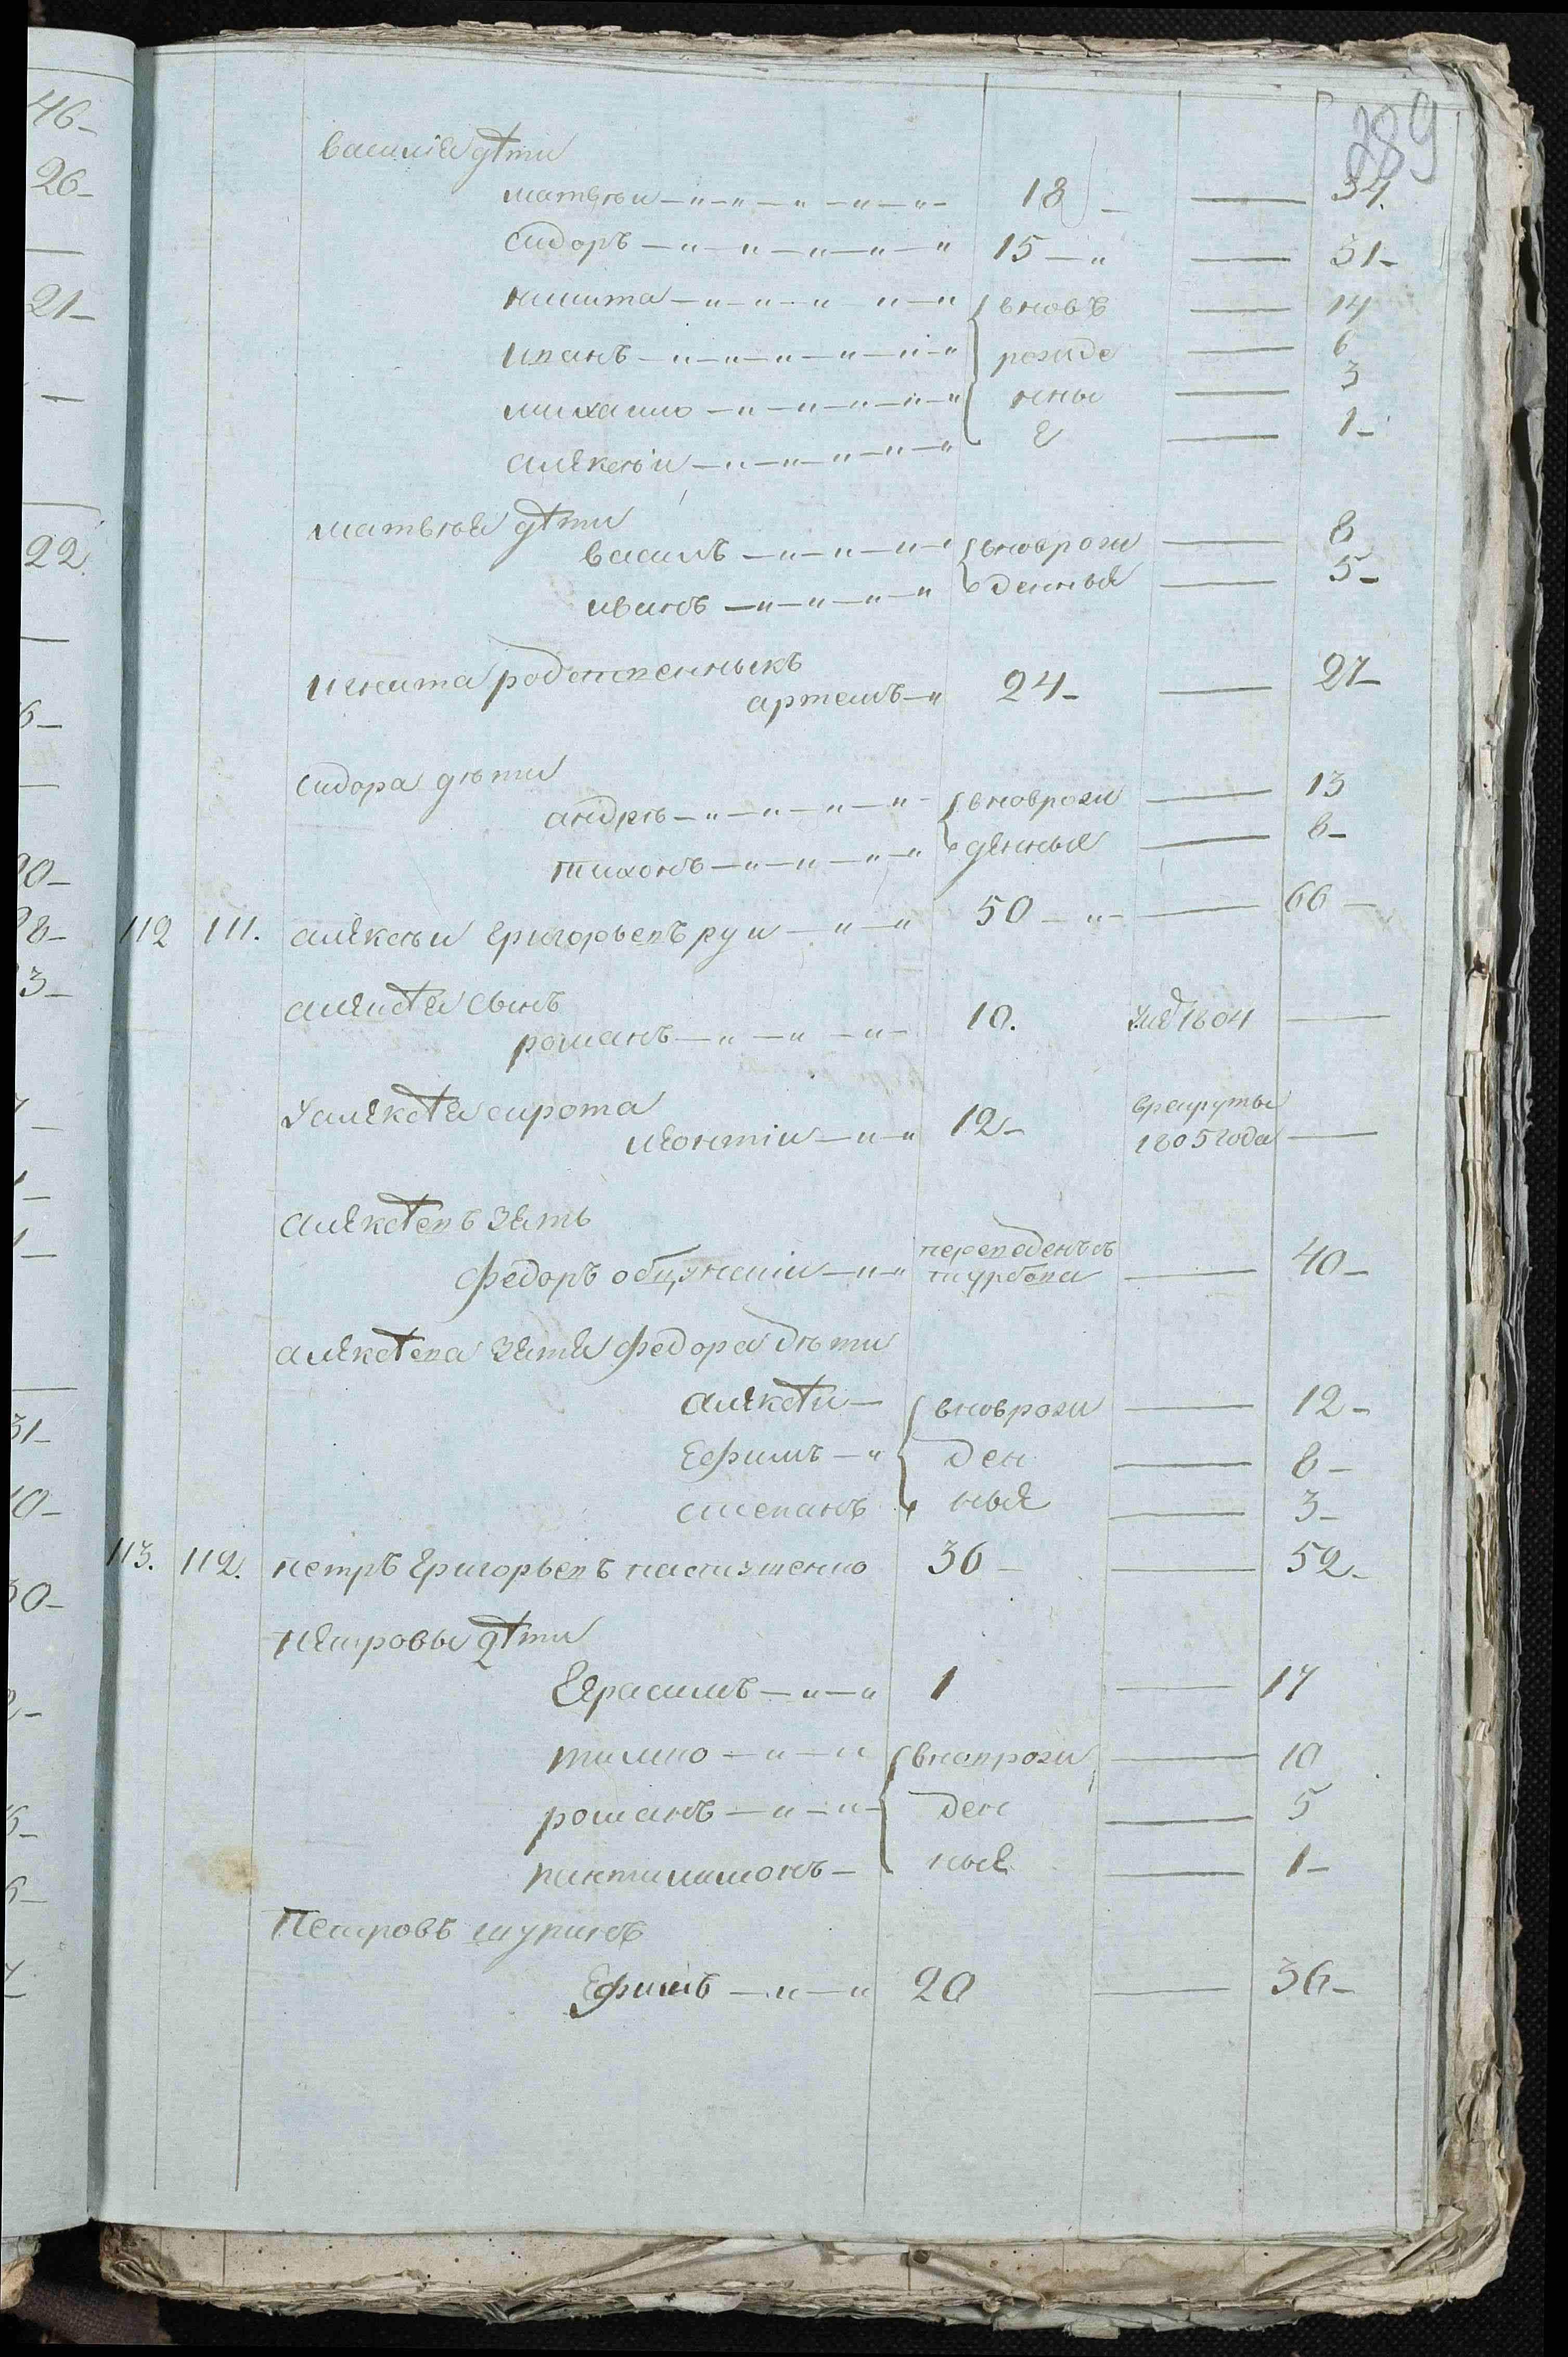 289
василія дѣти
матвѣи 18 — 34.
сидоръ 15 — 31
никита вновъ — 14
иванъ рожде — 6
михаило нны — 3
алексѣи е — 1
матвѣя дѣти
василь вноврож — 8
иванъ денные — 5
игната родственникъ
артемъ 24 — 27
сидора дѣти
андрѣ вноврож — 13
тихонъ денные — 8
112 111. алексѣи григорьевъ руи 50 — 66
алексѣя сынъ
романъ 10. умѣ 1804 —
У алексѣя сирота
леонтіи 12 врекруты
1805 года —
алексѣевъ зять
федоръ переведенъ съ — 40
алексѣева зятя федора дѣти
алексѣи вноврож — 12
ефимъ ден — 8
степанъ ные — 3
113. 112. петръ григорьевъ 36 — 52
петровы дѣти
герасимъ 1 — 17
тимко вновrож — 10
романъ ден — 5
пантилимонъ ные — 1
Петровъ шуринъ
Ефимъ 20 — 36
46
26
21
22
31